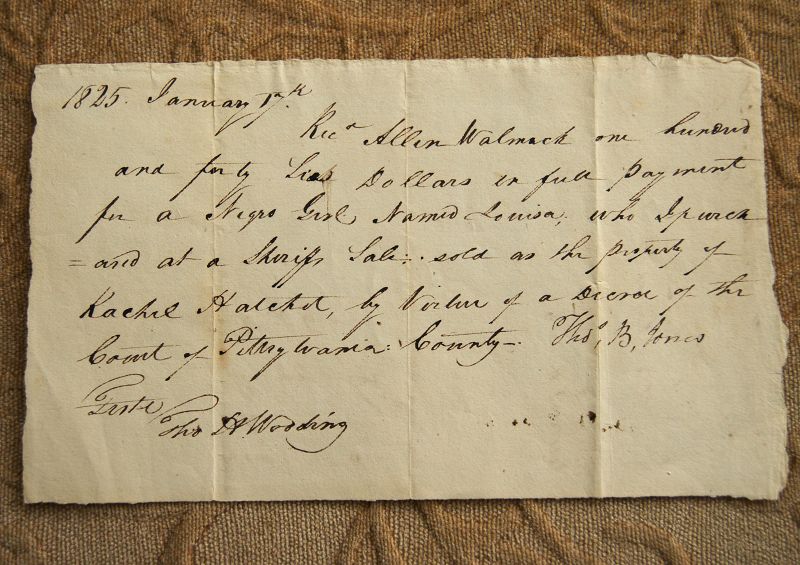 1825. January 17th
Recd Allen Walmack one hundred
and forty Six Dollars in full payment
for a Negro Girl Named Louisa, who I purch
=ased at a Sheriffs Sale: sold as the property of
Rachel Hatchet, by Virtue of a Decree of the
Court of Pittsylvania County. Thos. B, Jones
Teste
Tho H. Wodding